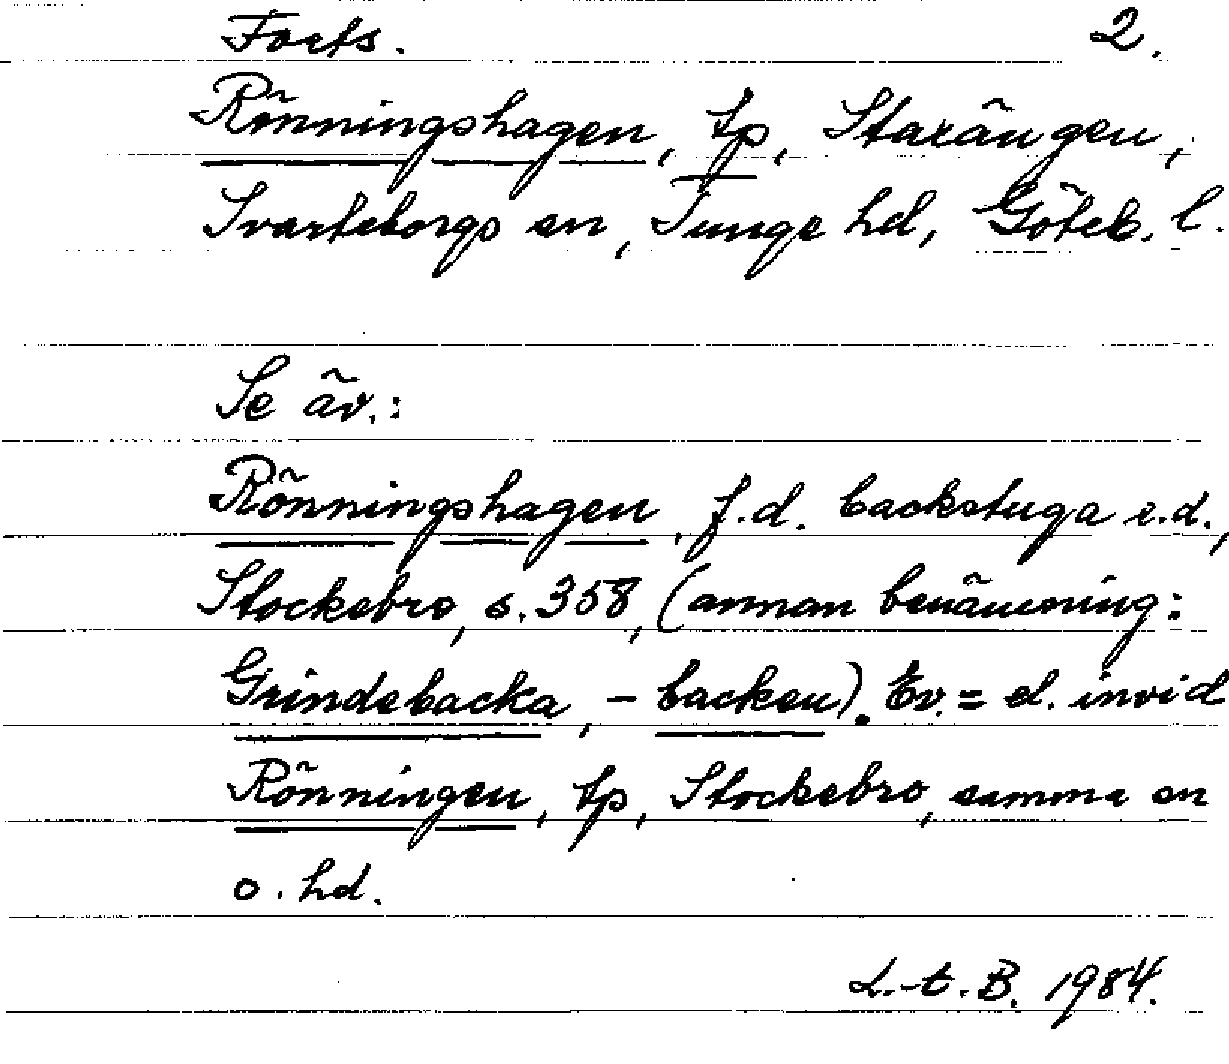 Forts. 2.
Rönningshagen, tp, Starängen,
Svarteborgs sn, Tunge hd, Göteb. l.
Se äv.:
Rönningshagen, f.d. backstuga e.d.,
Stockebro, s. 358, (annan benämning:
Grindebacka, -backen). Ev. = el. invid
Rönningen, tp, Stockebro, samma sn
o. hd.
L.-t. B. 1984.